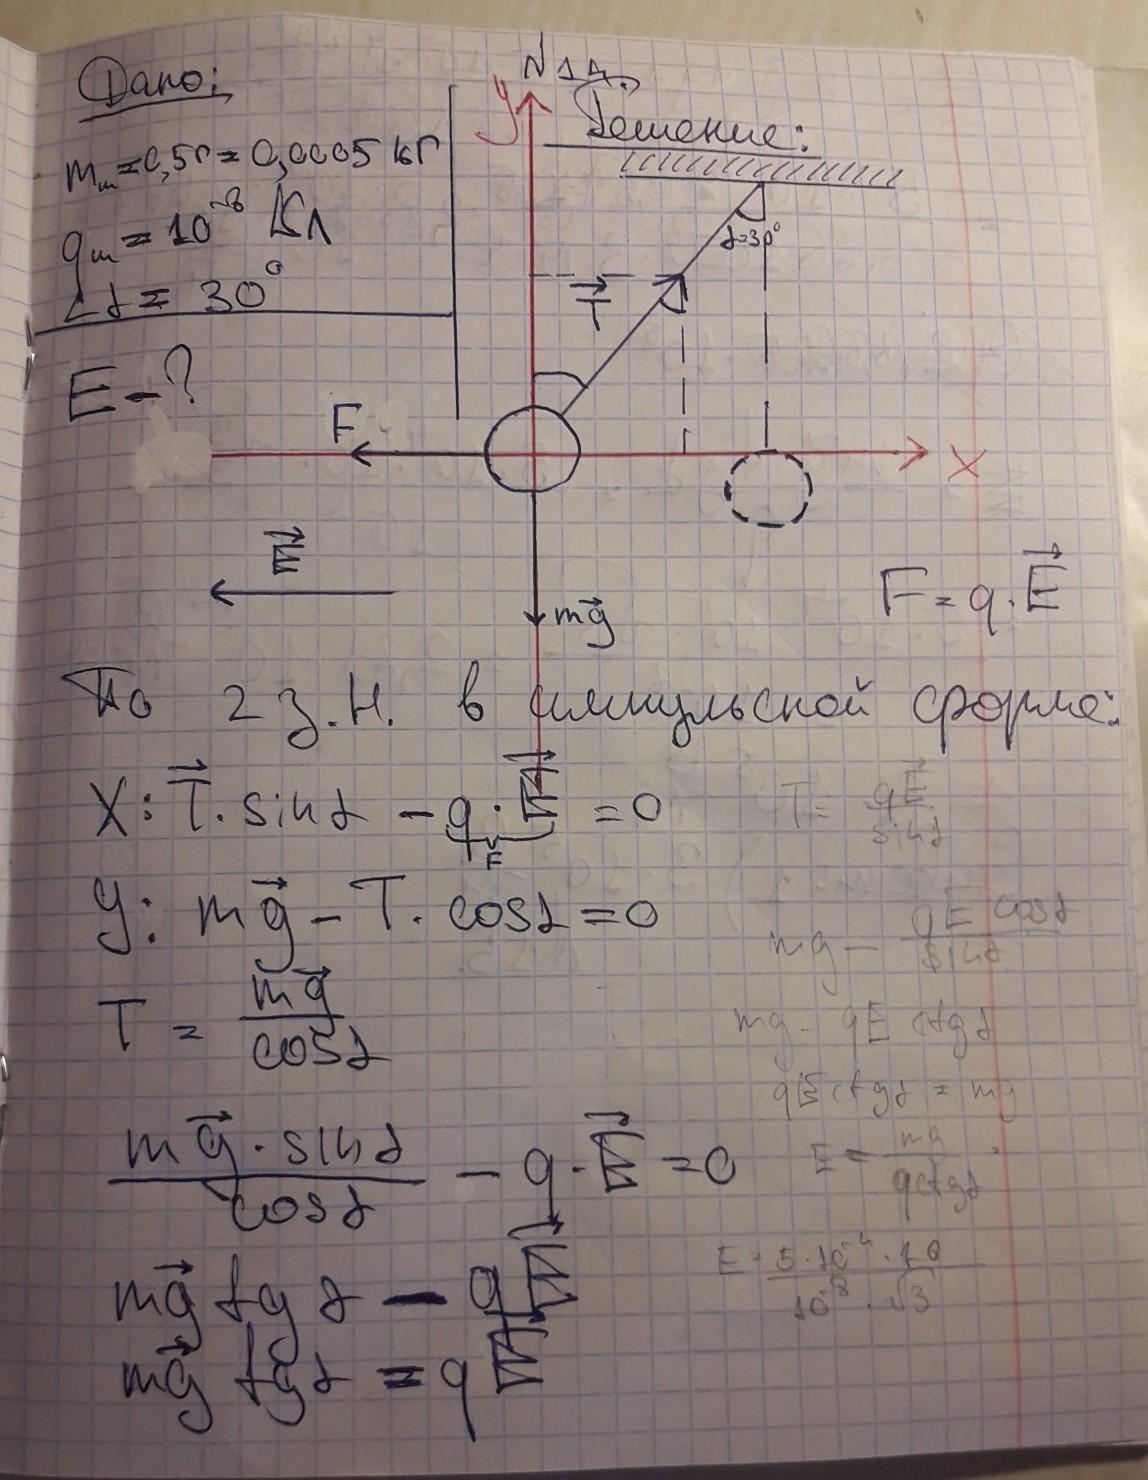 Дано:
mш=0,5г=0,0005 кг
qш = 10⁻⁸ Кл
∠α = 30°
E - ?
N 14.
Решение:
y
α=30°
T⃗
F
X
E⃗
mg⃗
F = q · E⃗
По 2 з.Н. в импульсной форме:
X: T⃗ · sinα - q · E⃗ = 0
F
y: mg⃗ - T · cosα = 0
T = mg⃗ / cosα
mg⃗ · sinα / cosα - q · E⃗ = 0
mg⃗ tg α - qE⃗
mg⃗ tgα = qE⃗
T = qE⃗ / sinα
mg - qE cosα / sinα
mg - qE ctgα
qE ctgα = mg
E = mg / qctgα
E = 5·10⁻⁴·10 / 10⁻⁸·√3